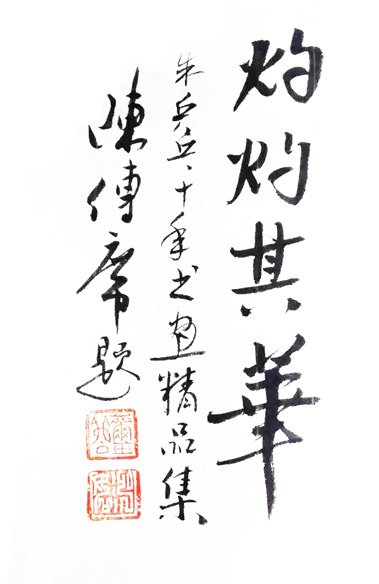 灼灼其華
朱兵兵、十年书画精品集
陳傳席题